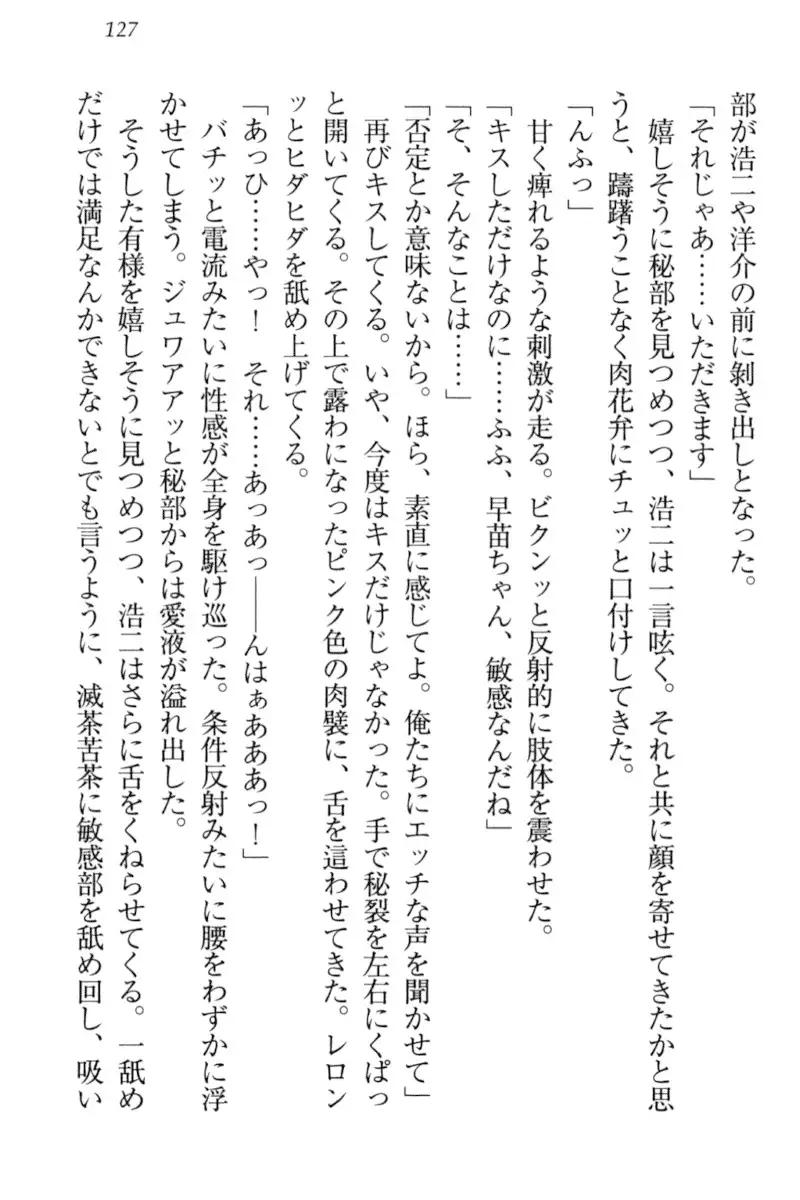 127
部が浩二や洋介の前に剝き出しとなった。
「それじゃあ……いただきます」
嬉しそうに秘部を見つめつつ、浩二は一言呟く。それと共に顔を寄せてきたかと思
うと、躊躇うことなく肉花弁にチュッと口付けしてきた。
「んふっ」
甘く痺れるような刺激が走る。ビクンッと反射的に肢体を震わせた。
「キスしただけなのに……ふふ、早苗ちゃん、敏感なんだね」
「そ、そんなことは……」
「否定とか意味ないから。ほら、素直に感じてよ。俺たちにエッチな声を聞かせて」
再びキスしてくる。いや、今度はキスだけじゃなかった。手で秘裂を左右にくぱっ
と開いてくる。その上で露わになったピンク色の肉襞に、舌を這わせてきた。レロン
ッとヒダヒダを舐め上げてくる。
「あっひ……やっ！　それ……あっあっ――んはぁあああっ！」
バチッと電流みたいに性感が全身を駆け巡った。条件反射みたいに腰をわずかに浮
かせてしまう。ジュワアアッと秘部からは愛液が溢れ出した。
そうした有様を嬉しそうに見つめつつ、浩二はさらに舌をくねらせてくる。一舐め
だけでは満足なんかできないとでも言うように、滅茶苦茶に敏感部を舐め回し、吸い